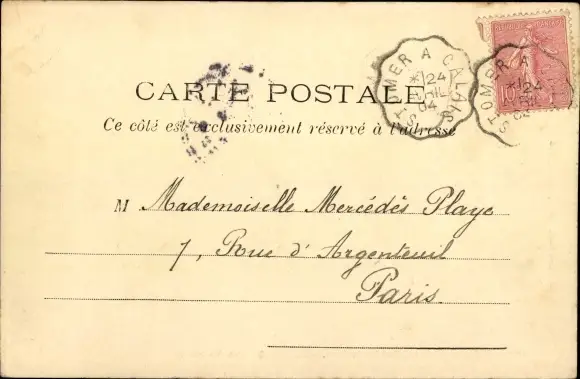 CARTE POSTALE
Ce côté est exclusivement réservé à l'adresse
ST OMER A CALAIS
24
04
ST OMER A
24
10
M Mademoiselle Mercédès Playe
7, Rue d'Argenteuil
Paris.